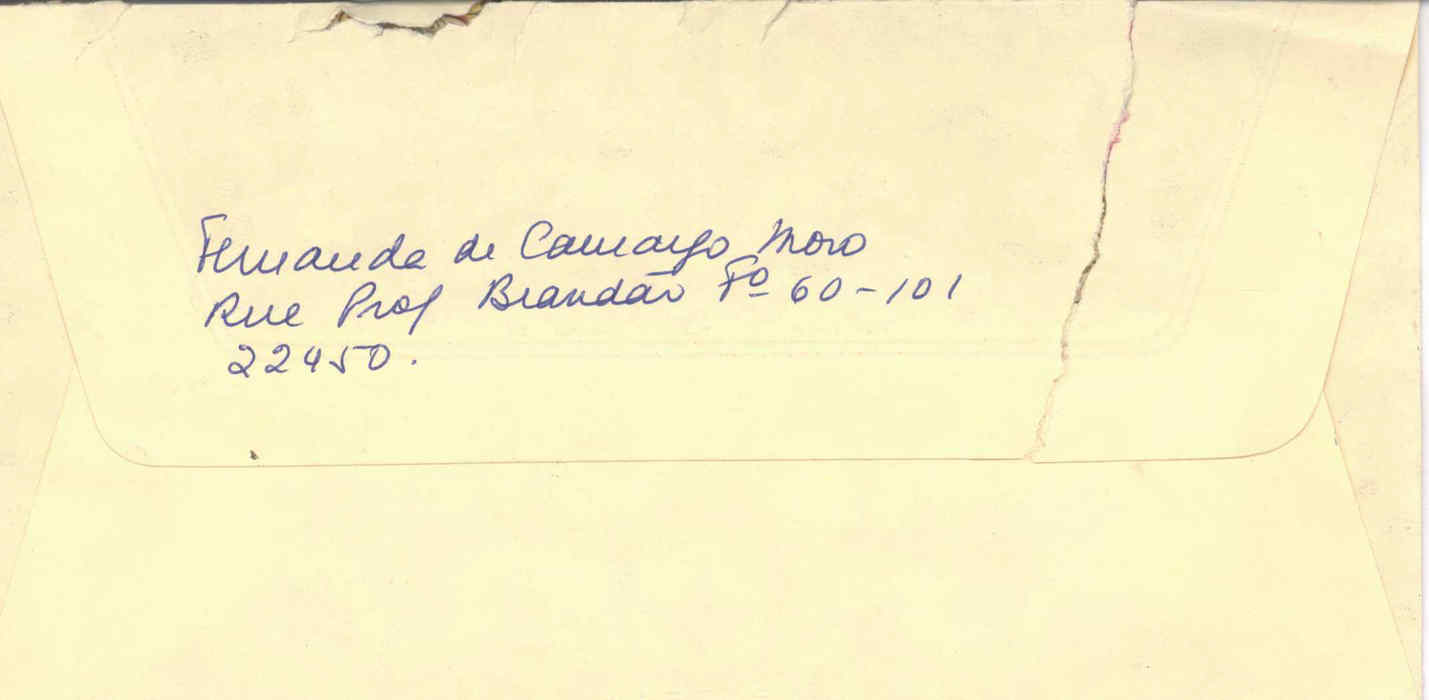 Fernanda de Camargo Moro
Rua Prof Brandão Fº 60-101
22450.